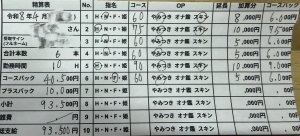 精算表
令和8年4月
受取サイン
(フルネーム)
合計本数
6 本
勤務時間
10 H
コースバック
40,500 円
プラスバック
10,000 円
小計
93,500 円
雑費
円
総支給
93,500 円
No 指名 コース OP 延長/割 コースバック
1 H・N・F・姫 60 やみつき オナ鑑 スキン 8,000円 6,000円
2 H・N・F・姫 75 やみつき オナ鑑 スキン 10,000円 7,500円
3 H・N・F・姫 60 やみつき オナ鑑 スキン 5,000円 6,000円
4 H・N・F・姫 60 やみつき オナ鑑 スキン 5,000円 6,000円
5 H・N・F・姫 90 やみつき オナ鑑 スキン 10,000円 9,000円
6 H・N・F・姫 60 やみつき オナ鑑 スキン 5,000円 6,000円
7 H・N・F・姫 やみつき オナ鑑 スキン ,000円 円
8 H・N・F・姫 やみつき オナ鑑 スキン ,000円 円
9 H・N・F・姫 やみつき オナ鑑 スキン ,000円 円
10 H・N・F・姫 やみつき オナ鑑 スキン ,000円 円